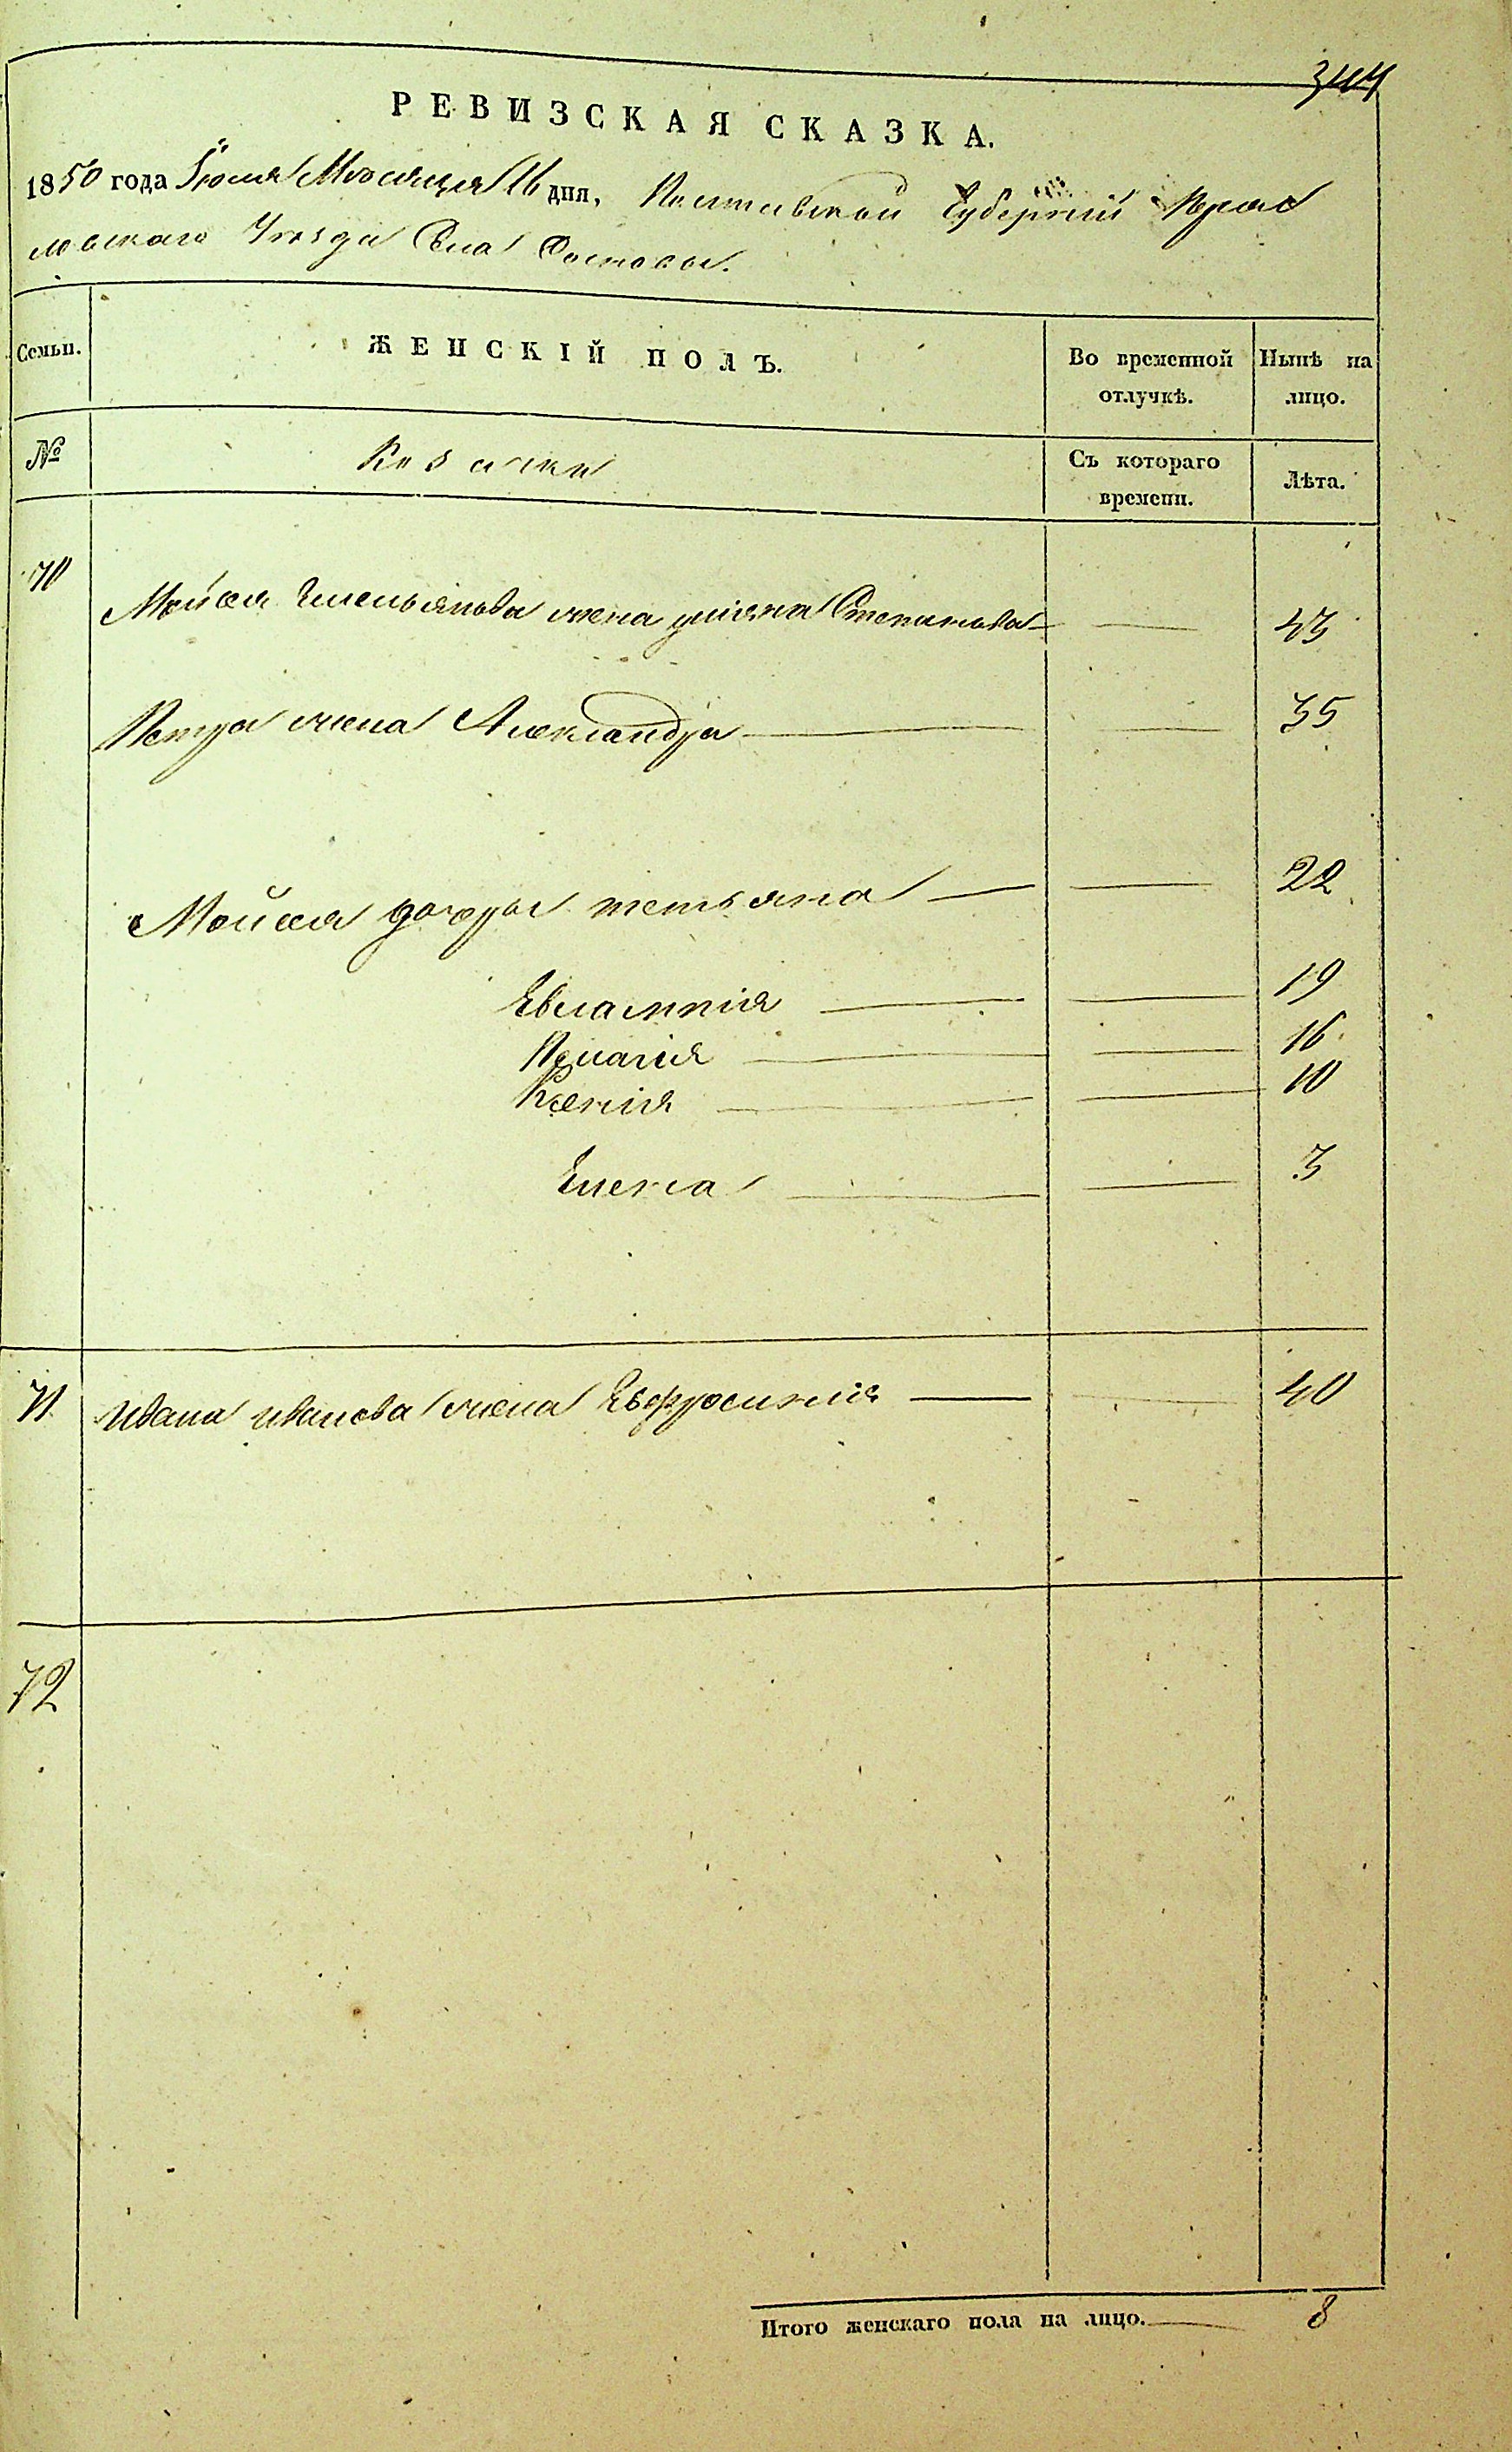 344
РЕВИЗСКАЯ СКАЗКА.
1850 года Іюля Месяца 16 дня, Полтавской Губернии
Уезда Села
Семьи. ЖЕНСКІЙ ПОЛЪ. Во временной отлучкѣ. Нынѣ на лицо.
№ Козачки Съ котораго времени. Лѣта.
70
Мойсея Емельянова жена улияна Степанова 43
Петра жена Александра 35
Мойсея дочеры тетьяна 22
Евлампия 19
Пелагия 16
Ксения 10
Елена 3
71 Ивана иванова жена Евфросиния 40
72
Итого женскаго пола на лицо. 8